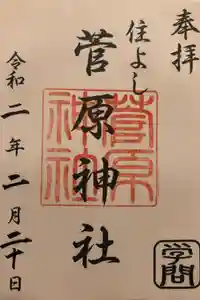 奉拝
住よし
菅原神社
菅原神社
令和二年二月二十日
学問